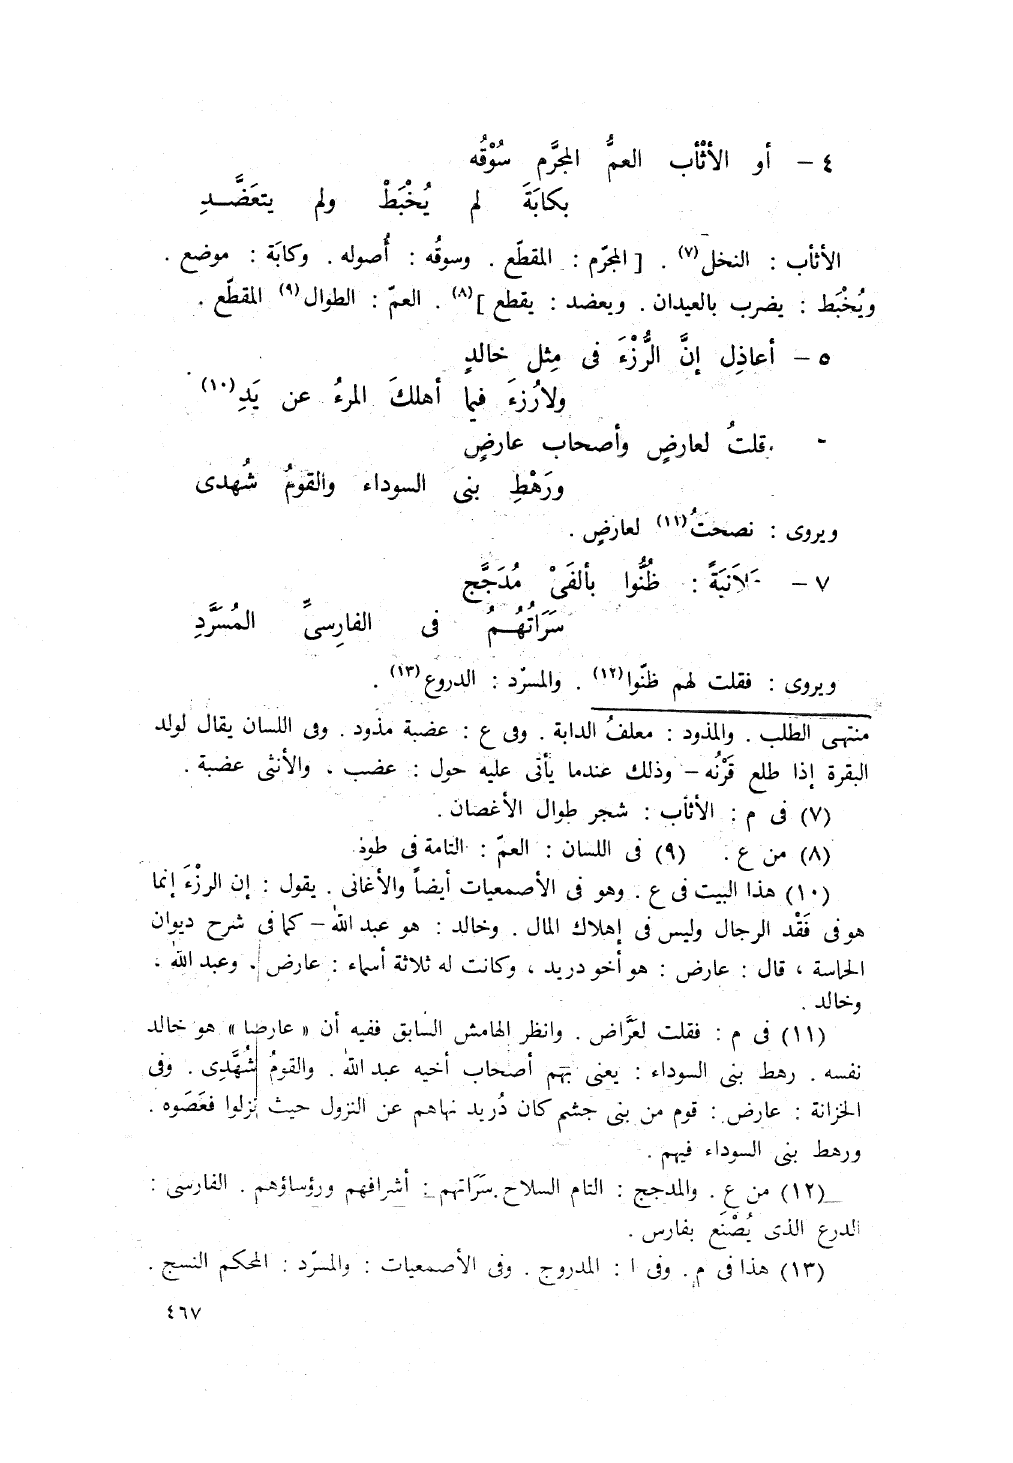 ٤ – أو الأثْأب العمُّ المجرَّم سُوْقُه
بكابَةَ لم يُخْبَطْ ولم يتعَضَّــدِ
الأثأب : النخل(٧) . [ المجرّم : المقطّع . وسوقُه : أُصوله . وكابَة : موضع .
ويُخْبَط : يضرب بالعيدان . ويعضد : يقطع ](٨) . العمّ : الطوال(٩) المقطّع .
٥ – أعاذِل إنَّ الرُّزْءَ فى مِثل خالدٍ
ولارُزءَ فيما أهلكَ المرءُ عن يَدِ(١٠)
- قلتُ لعارضٍ وأصحاب عارضٍ
ورَهْطِ بنى السوداء والقومُ شُهدى
ويروى : نصحتُ(١١) لعارضٍ .
٧ – عَلَانيَةً : ظُنُّوا بألفَىْ مُدَجَّج
سَرَاتُهُــمُ فى الفارِسىِّ المُسَرَّدِ
ويروى : فقلت لهم ظنّوا(١٢) . والمسرّد : الدروع(١٣) .
منتهى الطلب . والمذود : معلفُ الدابة . وفى ع : عضبة مذود . وفى اللسان يقال لولد
البقرة إذا طلع قَرْنُه – وذلك عندما يأتى عليه حول : عضب . والأنثى عضبة .
(٧) فى م : الأثأب : شجر طوال الأغصان .
(٨) من ع . (٩) فى اللسان : العمّ : التامة فى طوذ
(١٠) هذا البيت فى ع . وهو فى الأصمعيات أيضاً والأغانى . يقول : إن الرزْءَ إنما
هو فى فَقْد الرجال وليس فى إهلاك المال . وخالد : هو عبد الله – كما فى شرح ديوان
الحماسة ، قال : عارض : هو أخو دريد ، وكانت له ثلاثة أسماء : عارض . وعبد الله .
وخالد .
(١١) فى م : فقلت لعَرَّاض . وانظر الهامش السابق ففيه أن « عارضا » هو خالد
نفسه . رهط بنى السوداء : يعنى بهم أصحاب أخيه عبد الله . والقومُ شُهَّدِى . وفى
الخزانة : عارض : قوم من بنى جشم كان دُريد نهاهم عن النزول حيث نزلوا فعَصَوه .
ورهط بنى السوداء فيهم .
(١٢) من ع . والمدجج : التام السلاح . سَرَاتهم : أشرافهم ورؤساؤهم . الفارسى :
الدرع الذى يُصْنَع بفارس .
(١٣) هذا فى م . وفى ا : المدروج . وفى الأصمعيات : والمسرّد : المحكم النسج .
٤٦٧